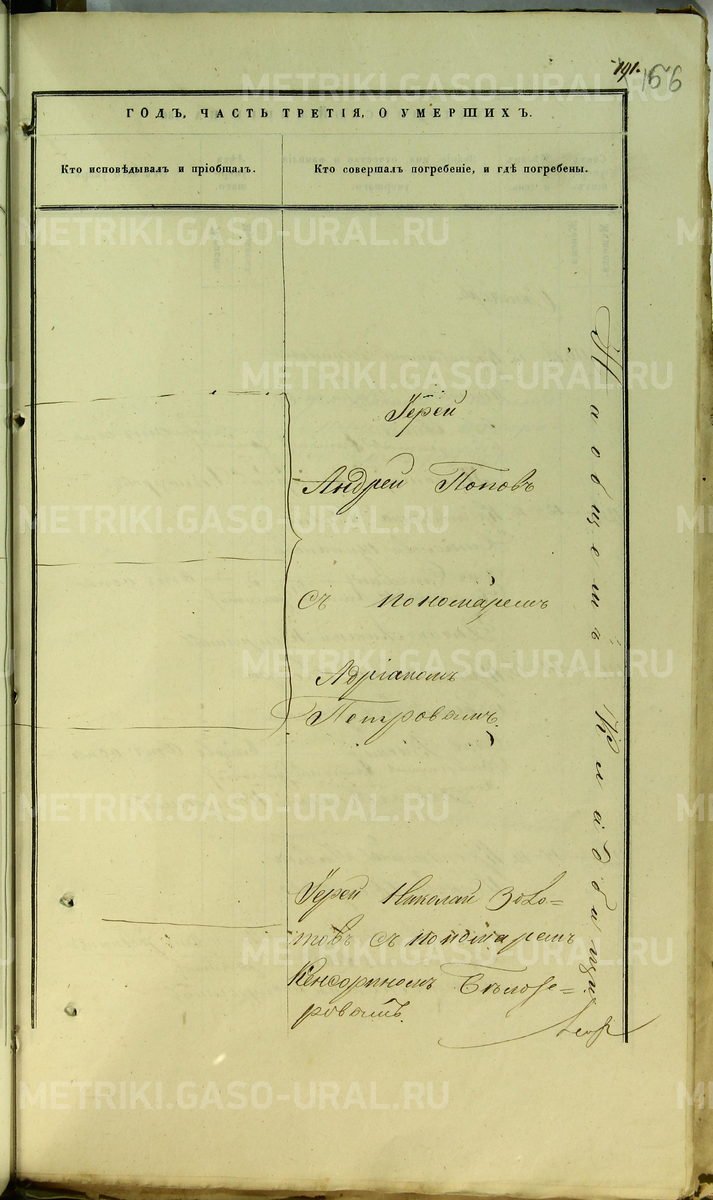 191.
166
ГОДЪ, ЧАСТЬ ТРЕТІЯ, О УМЕРШИХЪ.
Кто исповѣдывалъ и пріобщалъ.
Кто совершалъ погребеніе, и гдѣ погребены.
Іерей
Андрей Поповъ
съ пономаремъ
Адріаномъ
Петровымъ.
Іерей Николай Золо=
товъ съ пономаремъ
Кенсориномъ Бѣлозе=
ровымъ.
На общемъ Кладбищѣ.
METRIKI.GASO-URAL.RU